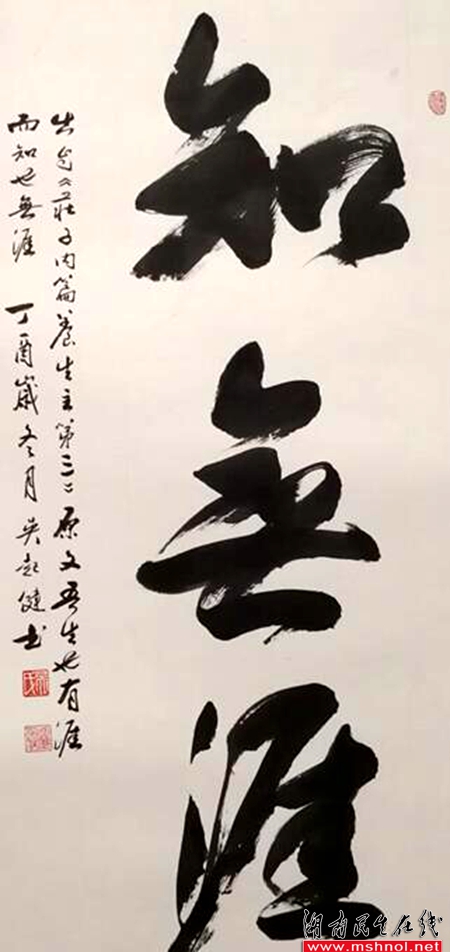 知無涯
出自《莊子内篇養生主第三》原文吾生也有涯
而知也無涯 丁酉歲冬月 吳起健書
湖南民生在线
www.mshnol.net